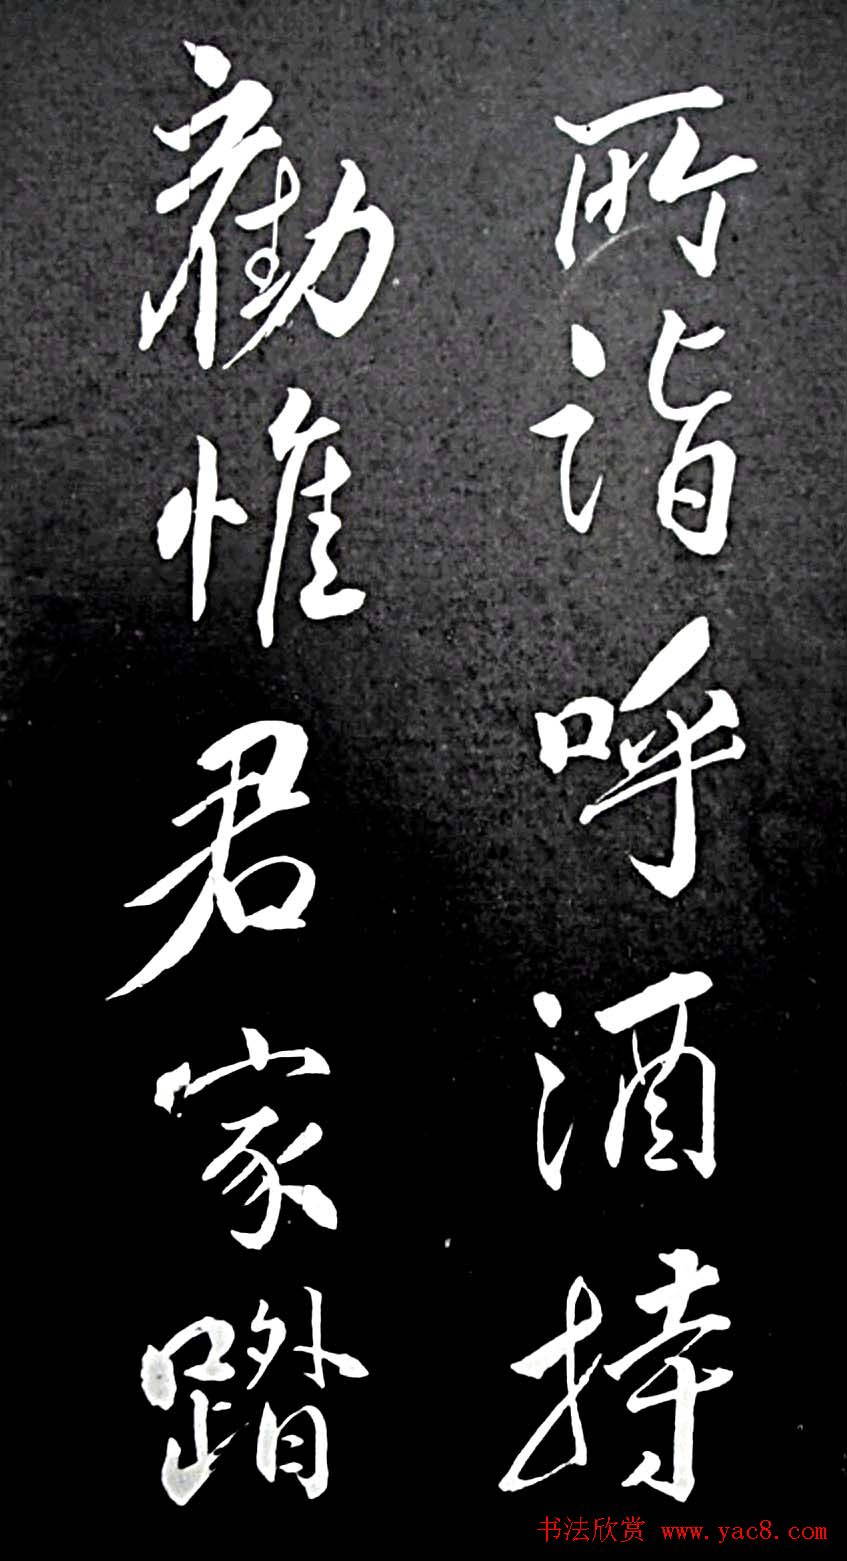 所诣呼酒持
勸惟君家踏
书法欣赏 www.yac8.com